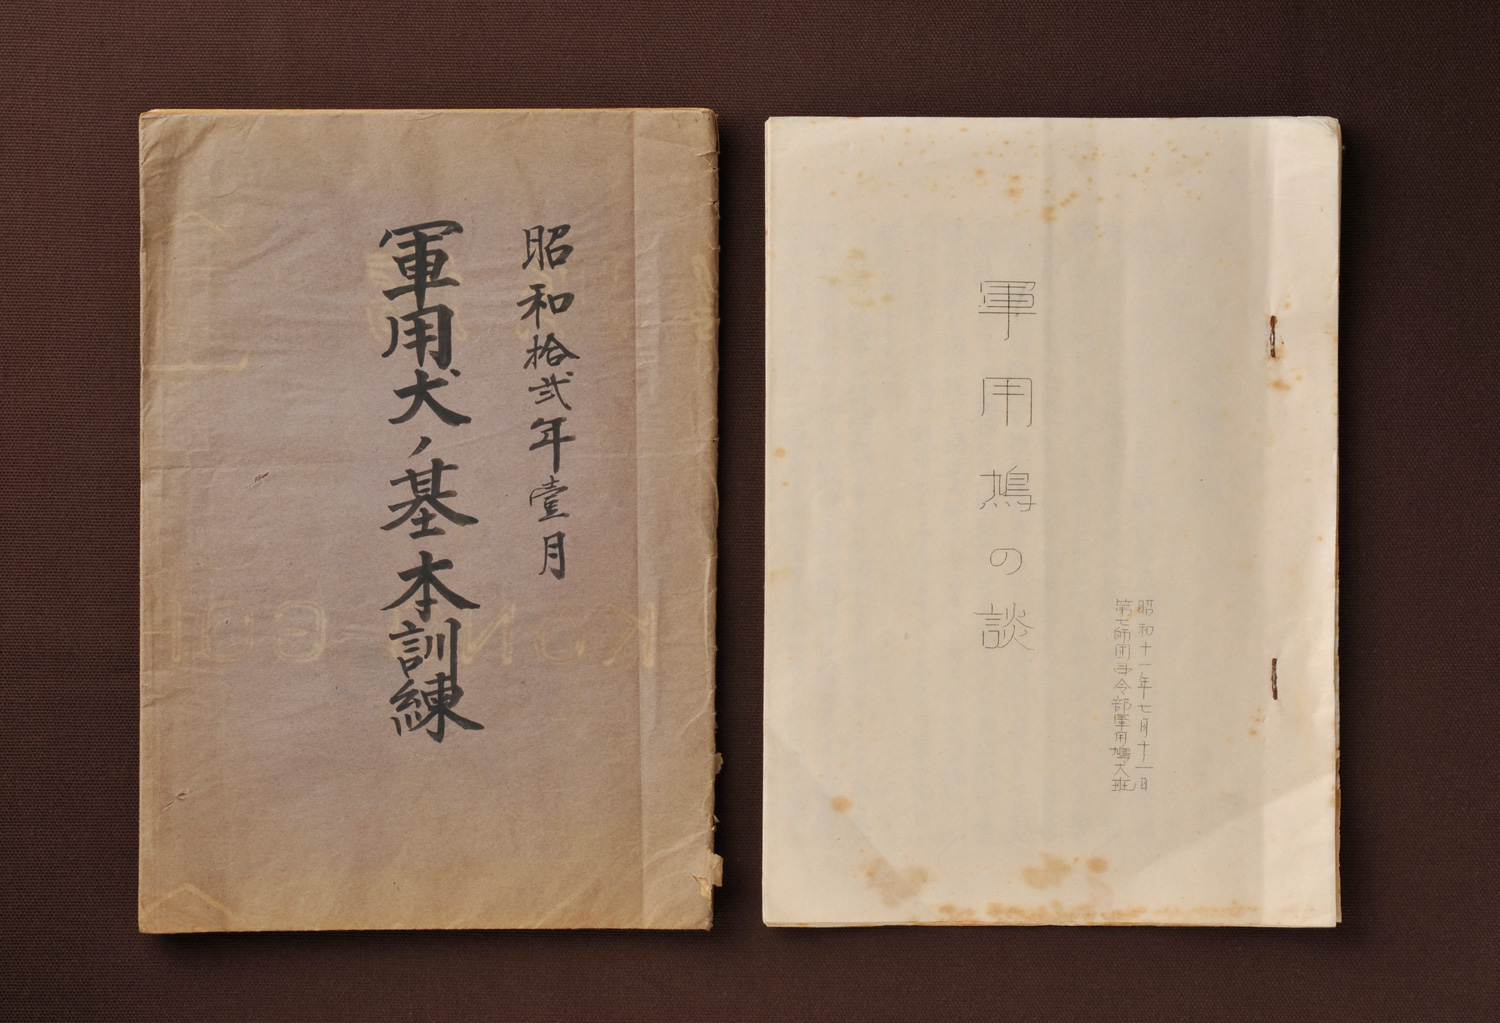 昭和拾弐年壹月
軍用犬ノ基本訓練
昭和十一年七月十一日
第七師団司令部軍用鳩犬班
軍用鳩の談